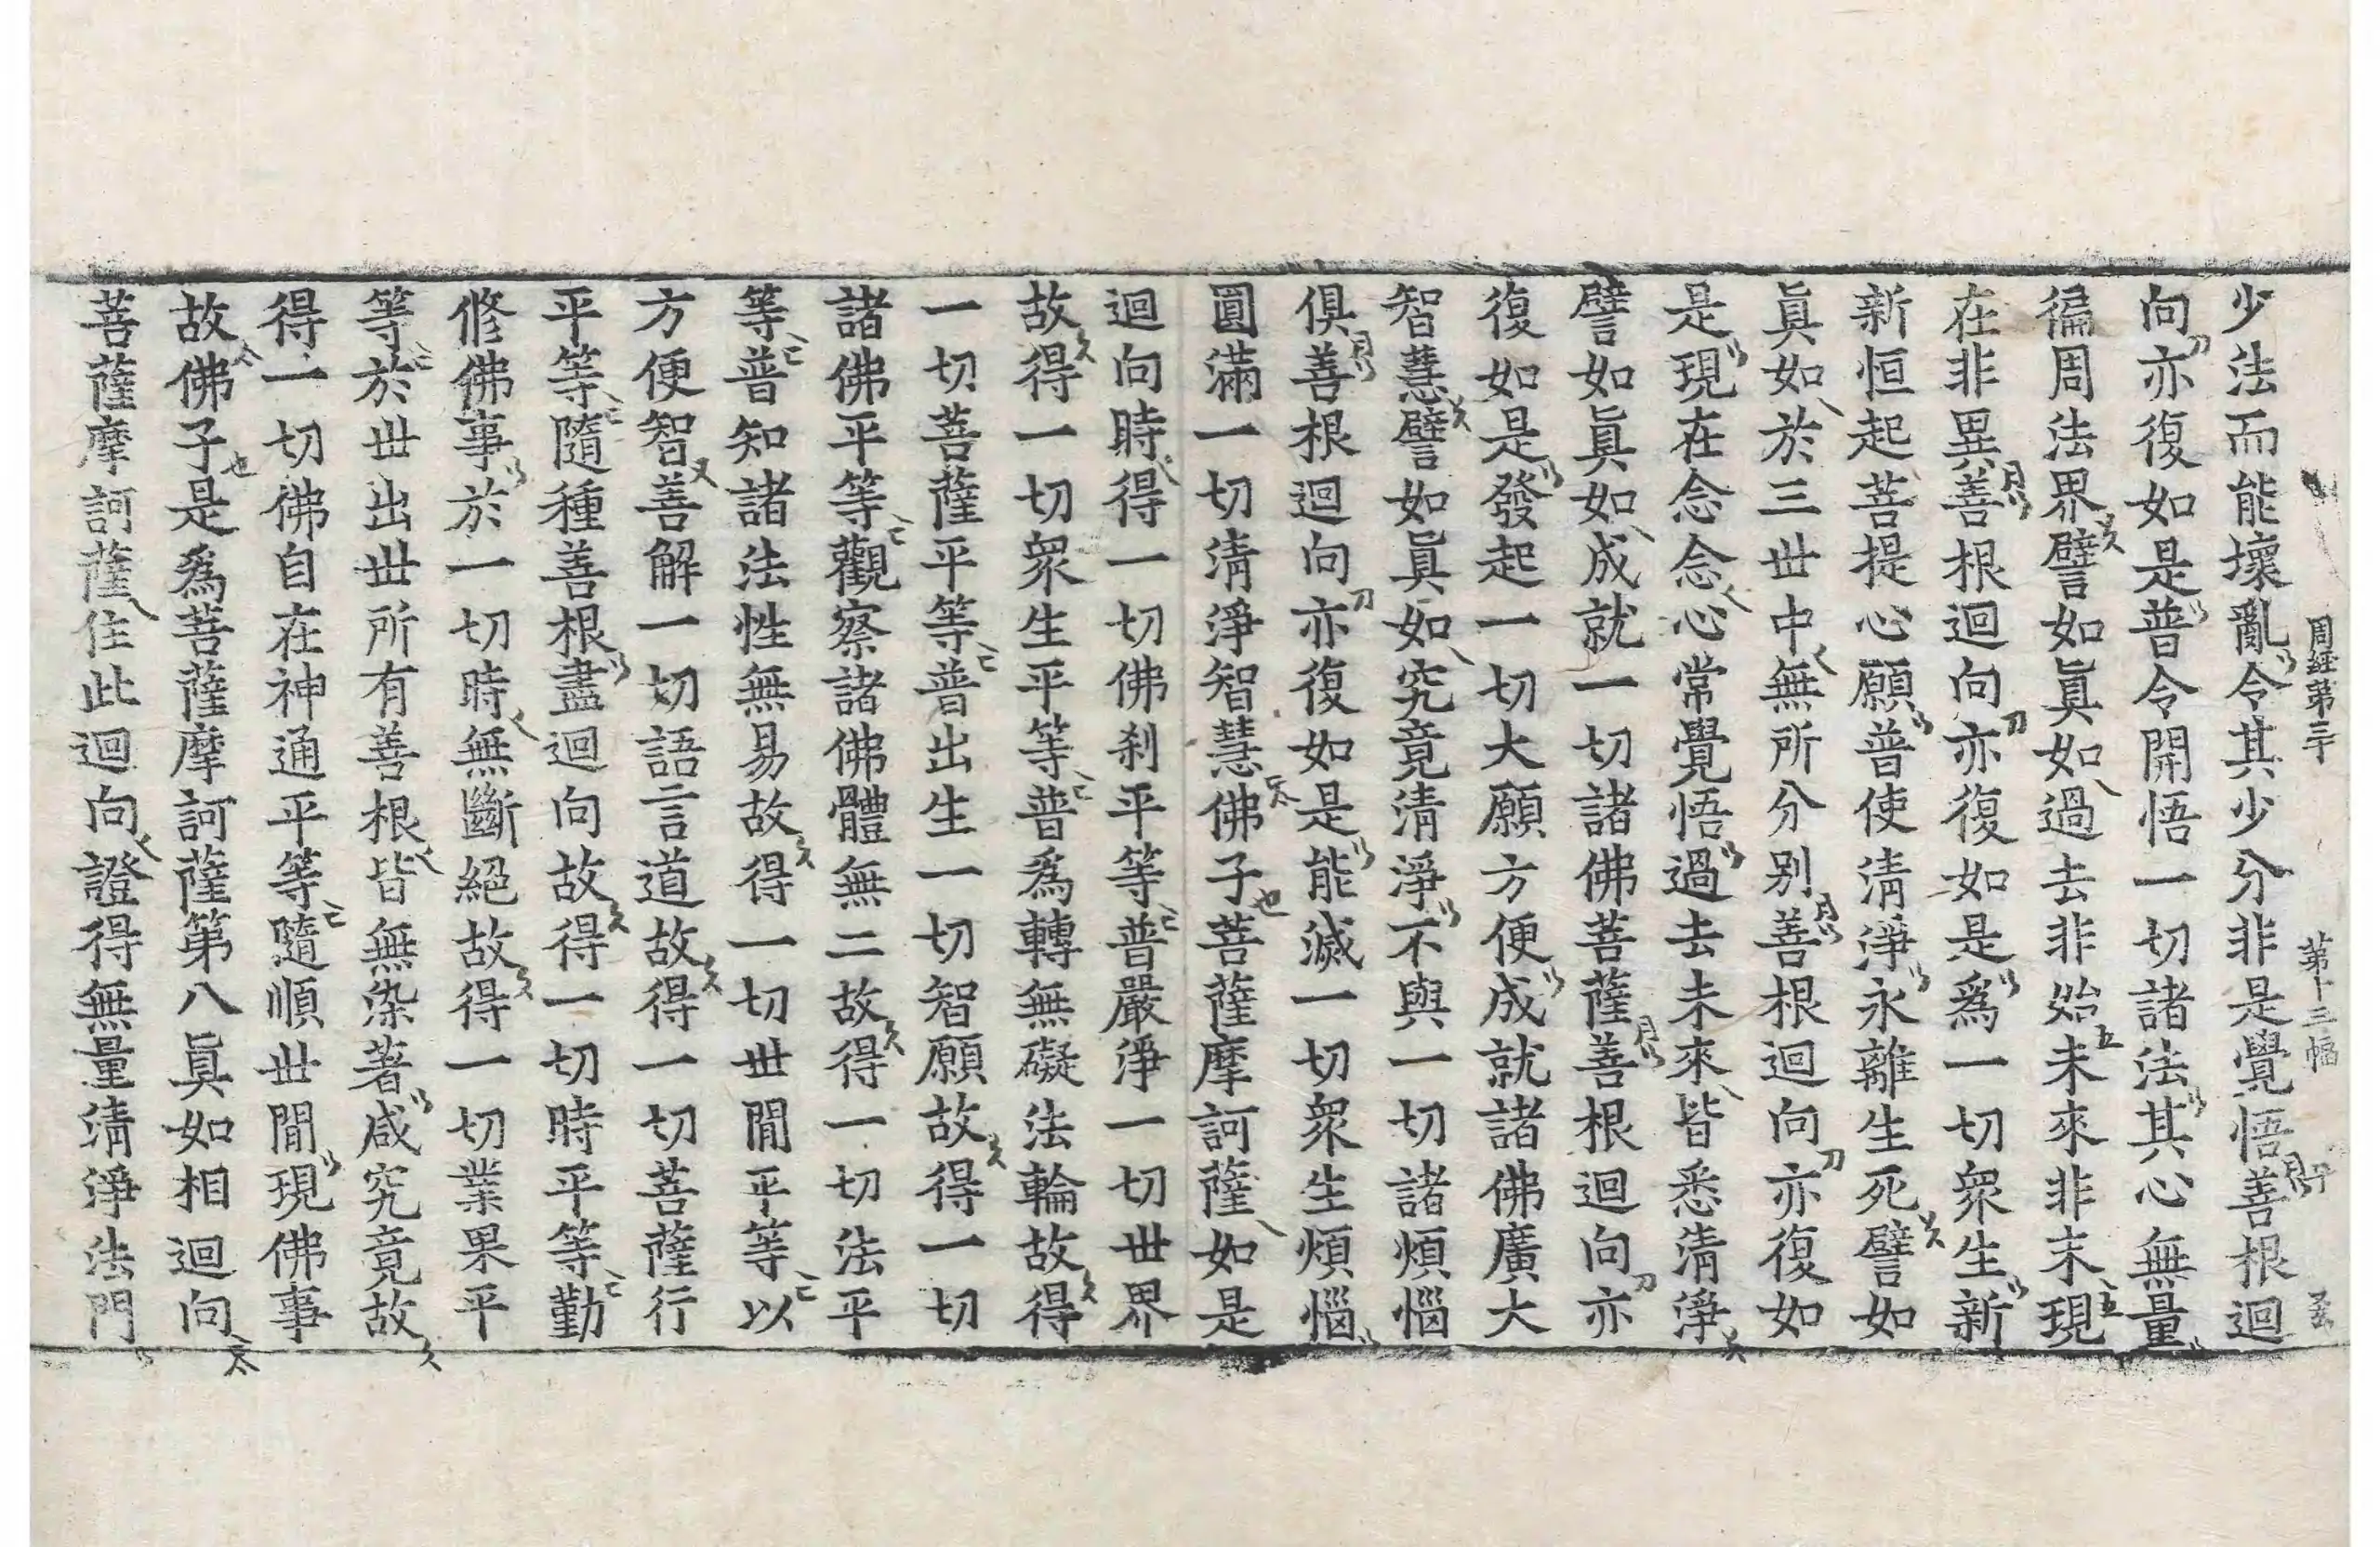 周経第三十 第十三幅
少法而能壞亂令其少分非是覺悟善根迴
向亦復如是普令開悟一切諸法其心無量
徧周法界譬如眞如過去非始未來非末現
在非異善根迴向亦復如是爲一切衆生新
新恒起菩提心願普使淸淨永離生死譬如
眞如於三世中無所分別善根迴向亦復如
是現在念念心常覺悟過去未來皆悉淸淨
譬如眞如成就一切諸佛菩薩善根迴向亦
復如是發起一切大願方便成就諸佛廣大
智慧譬如眞如究竟淸淨不與一切諸煩惱
俱善根迴向亦復如是能滅一切衆生煩惱
圓滿一切淸淨智慧佛子菩薩摩訶薩如是
迴向時得一切佛刹平等普嚴淨一切世界
故得一切衆生平等普爲轉無礙法輪故得
一切菩薩平等普出生一切智願故得一切
諸佛平等觀察諸佛體無二故得一切法平
等普知諸法性無易故得一切世間平等以
方便智善解一切語言道故得一切菩薩行
平等隨種善根盡迴向故得一切時平等勤
修佛事於一切時無斷絕故得一切業果平
等於世出世所有善根皆無染著咸究竟故
得一切佛自在神通平等隨順世間現佛事
故佛子是爲菩薩摩訶薩第八眞如相迴向
菩薩摩訶薩住此迴向證得無量淸淨法門